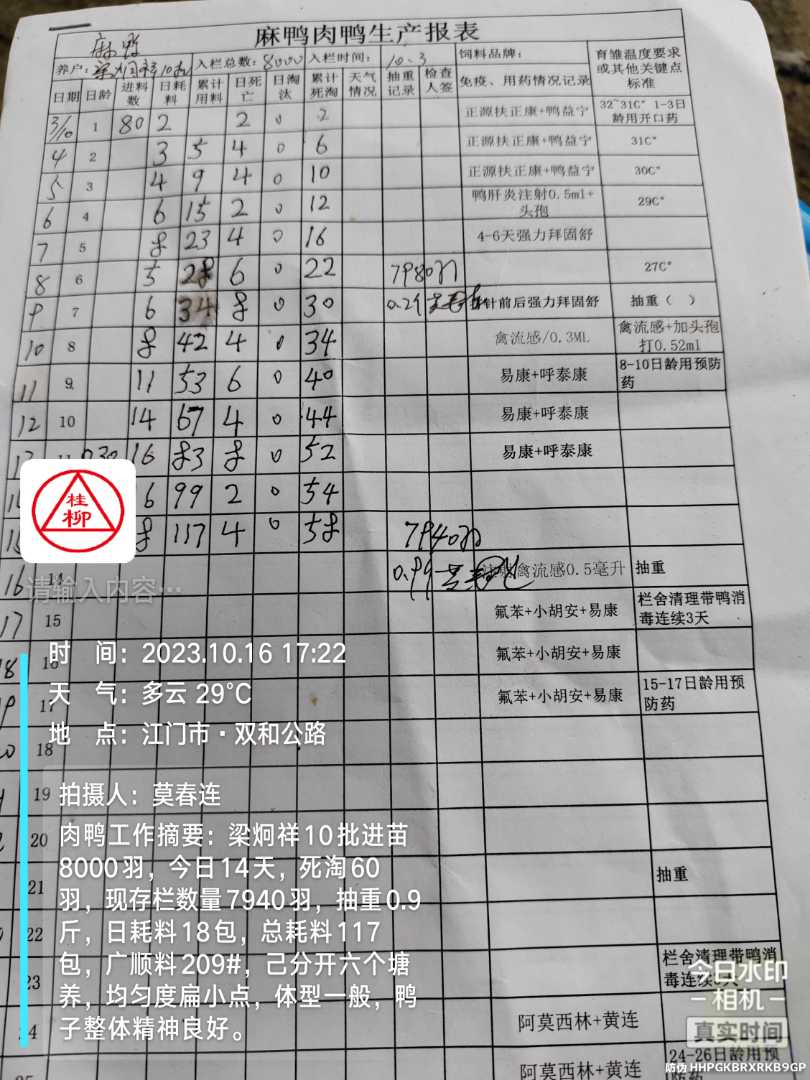 麻鸭肉鸭生产报表
麻鸭
养户: 梁炯祥10批 入栏总数: 8000 入栏时间: 10.3 饲料品牌: 育雏温度要求或其他关键点标准
日期 日龄 进料数 日耗料 累计用料 日死亡 日淘汰 累计死淘 天气情况 抽重记录 检查人签 免疫、用药情况记录
3/10 1 80 2 2 0 2 正源扶正康+鸭益宁 32~31C° 1-3日龄用开口药
4 2 3 5 4 0 6 正源扶正康+鸭益宁 31C°
5 3 4 9 4 0 10 正源扶正康+鸭益宁 30C°
6 4 6 15 2 0 12 鸭肝炎注射0.5ml+头孢 29C°
7 5 8 23 4 0 16 4-6天强力拜固舒
8 6 5 28 6 0 22 7980羽 27C°
9 7 6 34 8 0 30 针前后强力拜固舒 抽重（ ）
10 8 8 42 4 0 34 禽流感/0.3ML 禽流感+加头孢打0.52ml
11 9 11 53 6 0 40 易康+呼泰康 8-10日龄用预防药
12 10 14 67 4 0 44 易康+呼泰康
16 83 8 0 52 易康+呼泰康
6 99 2 0 54
8 117 4 0 58 7940羽
16 14 禽流感0.5毫升 抽重
17 15 氟苯+小胡安+易康 栏舍清理带鸭消毒连续3天
18 16 氟苯+小胡安+易康
17 氟苯+小胡安+易康 15-17日龄用预防药
18
19
20
21 抽重
22
23 栏舍清理带鸭消毒连续
24 阿莫西林+黄连
25 阿莫西林+黄连 24-26日龄用预防药
桂柳
请输入内容…
时 间: 2023.10.16 17:22
天 气: 多云 29℃
地 点: 江门市·双和公路
拍摄人: 莫春连
肉鸭工作摘要: 梁炯祥10批进苗
8000羽，今日14天，死淘60
羽，现存栏数量7940羽，抽重0.9
斤，日耗料18包，总耗料117
包，广顺料209#，己分开六个塘
养，均匀度扁小点，体型一般，鸭
子整体精神良好。
今日水印
相机
真实时间
防伪 HHPGKBRXRKB9GP